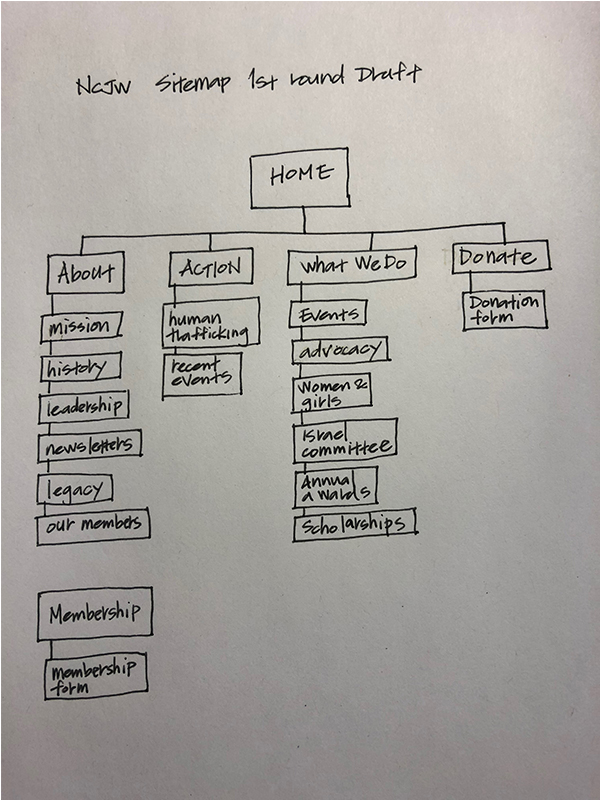 NCJW Sitemap 1st round Draft
HOME
About
mission
history
leadership
newsletters
legacy
our members
ACTION
human
trafficking
recent
events
What We Do
Events
advocacy
Women &
girls
Israel
committee
Annual
awards
Scholarships
Donate
Donation
form
Membership
membership
form